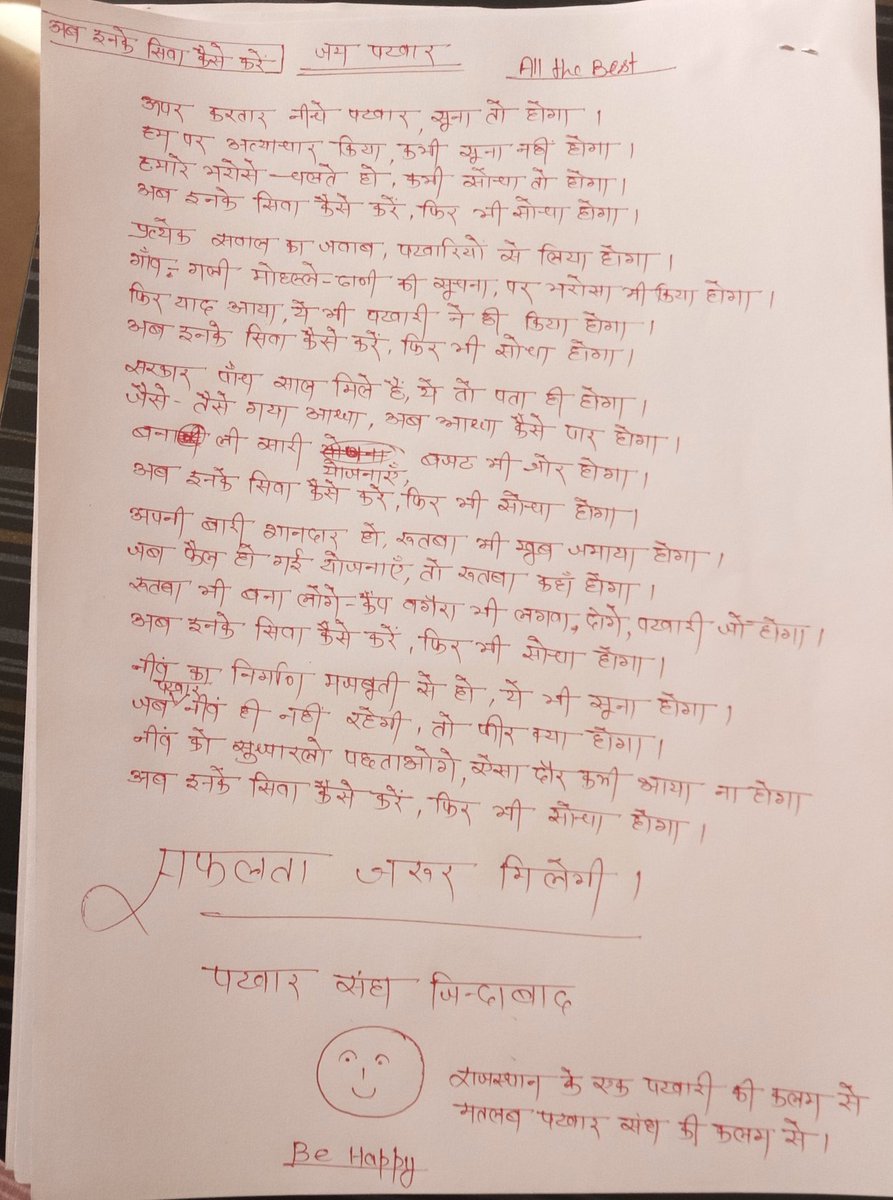 अब इनके सिवा कैसे करें
जय पटवार
All the Best
ऊपर करतार नीचे पटवार, सूना तो होगा ।
हम पर अत्याचार किया, कभी सूना नहीं होगा ।
हमारे भरोसे चलते हो, कभी सोंचा तो होगा ।
अब इनके सिवा कैसे करें, फिर भी सोंचा होगा ।
प्रत्येक सवाल का जवाब, पटवारियों से लिया होगा ।
गाँव, गली मोहल्ले-ढाणी की सूचना, पर भरोसा भी किया होगा ।
फिर याद आया, ये भी पटवारी ने ही किया होगा ।
अब इनके सिवा कैसे करें, फिर भी सोंचा होगा ।
सरकार पाँच साल मिले हैं, ये तो पता ही होगा ।
जैसे-तैसे गया आधा, अब आधा कैसे पार होगा ।
बना ली सारी योजनाएँ, बजट भी और होगा ।
अब इनके सिवा कैसे करें, फिर भी सोंचा होगा ।
अपनी बारी शानदार हो, रूतबा भी खूब जमाया होगा ।
जब फैल हो गई योजनाएँ, तो रूतबा कहाँ होगा ।
रूतबा भी बना लोगे-कैंप वगैरा भी लगवा दोगे, पटवारी जो होगा ।
अब इनके सिवा कैसे करें, फिर भी सोंचा होगा ।
नीवं का निर्माण मजबूती से हो, ये भी सूना होगा ।
जब पटवार नीवं ही नहीं रहेगी, तो फीर क्या होगा ।
नीवं को सुधारलो पछताओगे, ऐसा दौर कभी आया ना होगा
अब इनके सिवा कैसे करें, फिर भी सोंचा होगा ।
सफलता जरूर मिलेगी ।
पटवार संघ जिन्दाबाद
राजस्थान के एक पटवारी की कलम से
मतलब पटवार संघ की कलम से ।
Be Happy